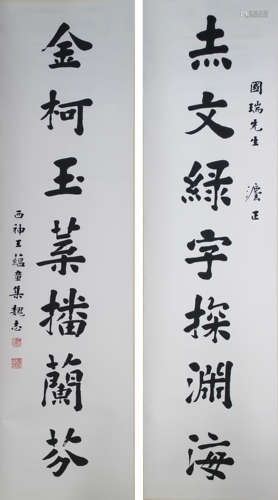 赤文緑字探淵海
國瑞先生 灋正
金柯玉葉播蘭芬
西神王蘊章集魏志